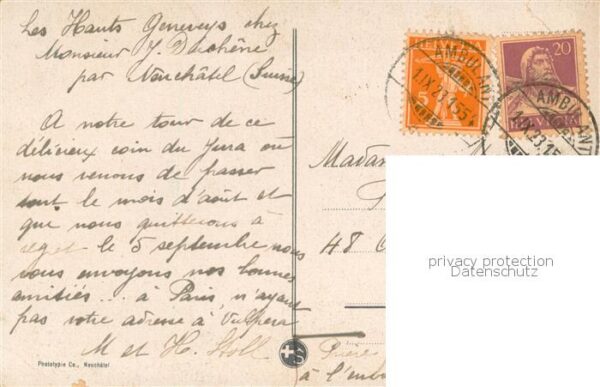 Les Hauts Geneveys chez
Monsieur J. Duchêne
par Neuchâtel (Suisse)
A notre tour de ce
délicieux coin du Jura où
nous venons de passer
tout le mois d'août et
que nous quitterons à
le 5 septembre nous
vous envoyons nos bonnes
amitiés... à Paris, n'ayant
pas votre adresse à Vulpera
M et H. Stoll
Phototypie Co., Neuchâtel
HELVETIA
5
20
AMBULANT
1.IX.23.15
AMBULANT
1.IX.23.15
Madam
48
Prière
à l'emb
privacy protection
Datenschutz